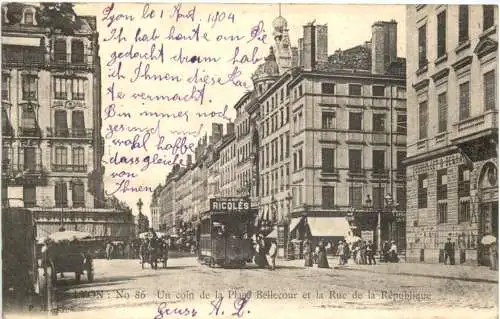 Lyon le 1 Aout, 1904
Ich hab heute an Die
gedacht drum hab
ich Ihnen diese Karte
vermacht.
Bin immer noch
gesund und
wohl hoffe
dass gleich
von
Ihnen
RICQLÈS
LYON : No 86 Un coin de la Place Bellecour et la Rue de la République
Gruss A. D.